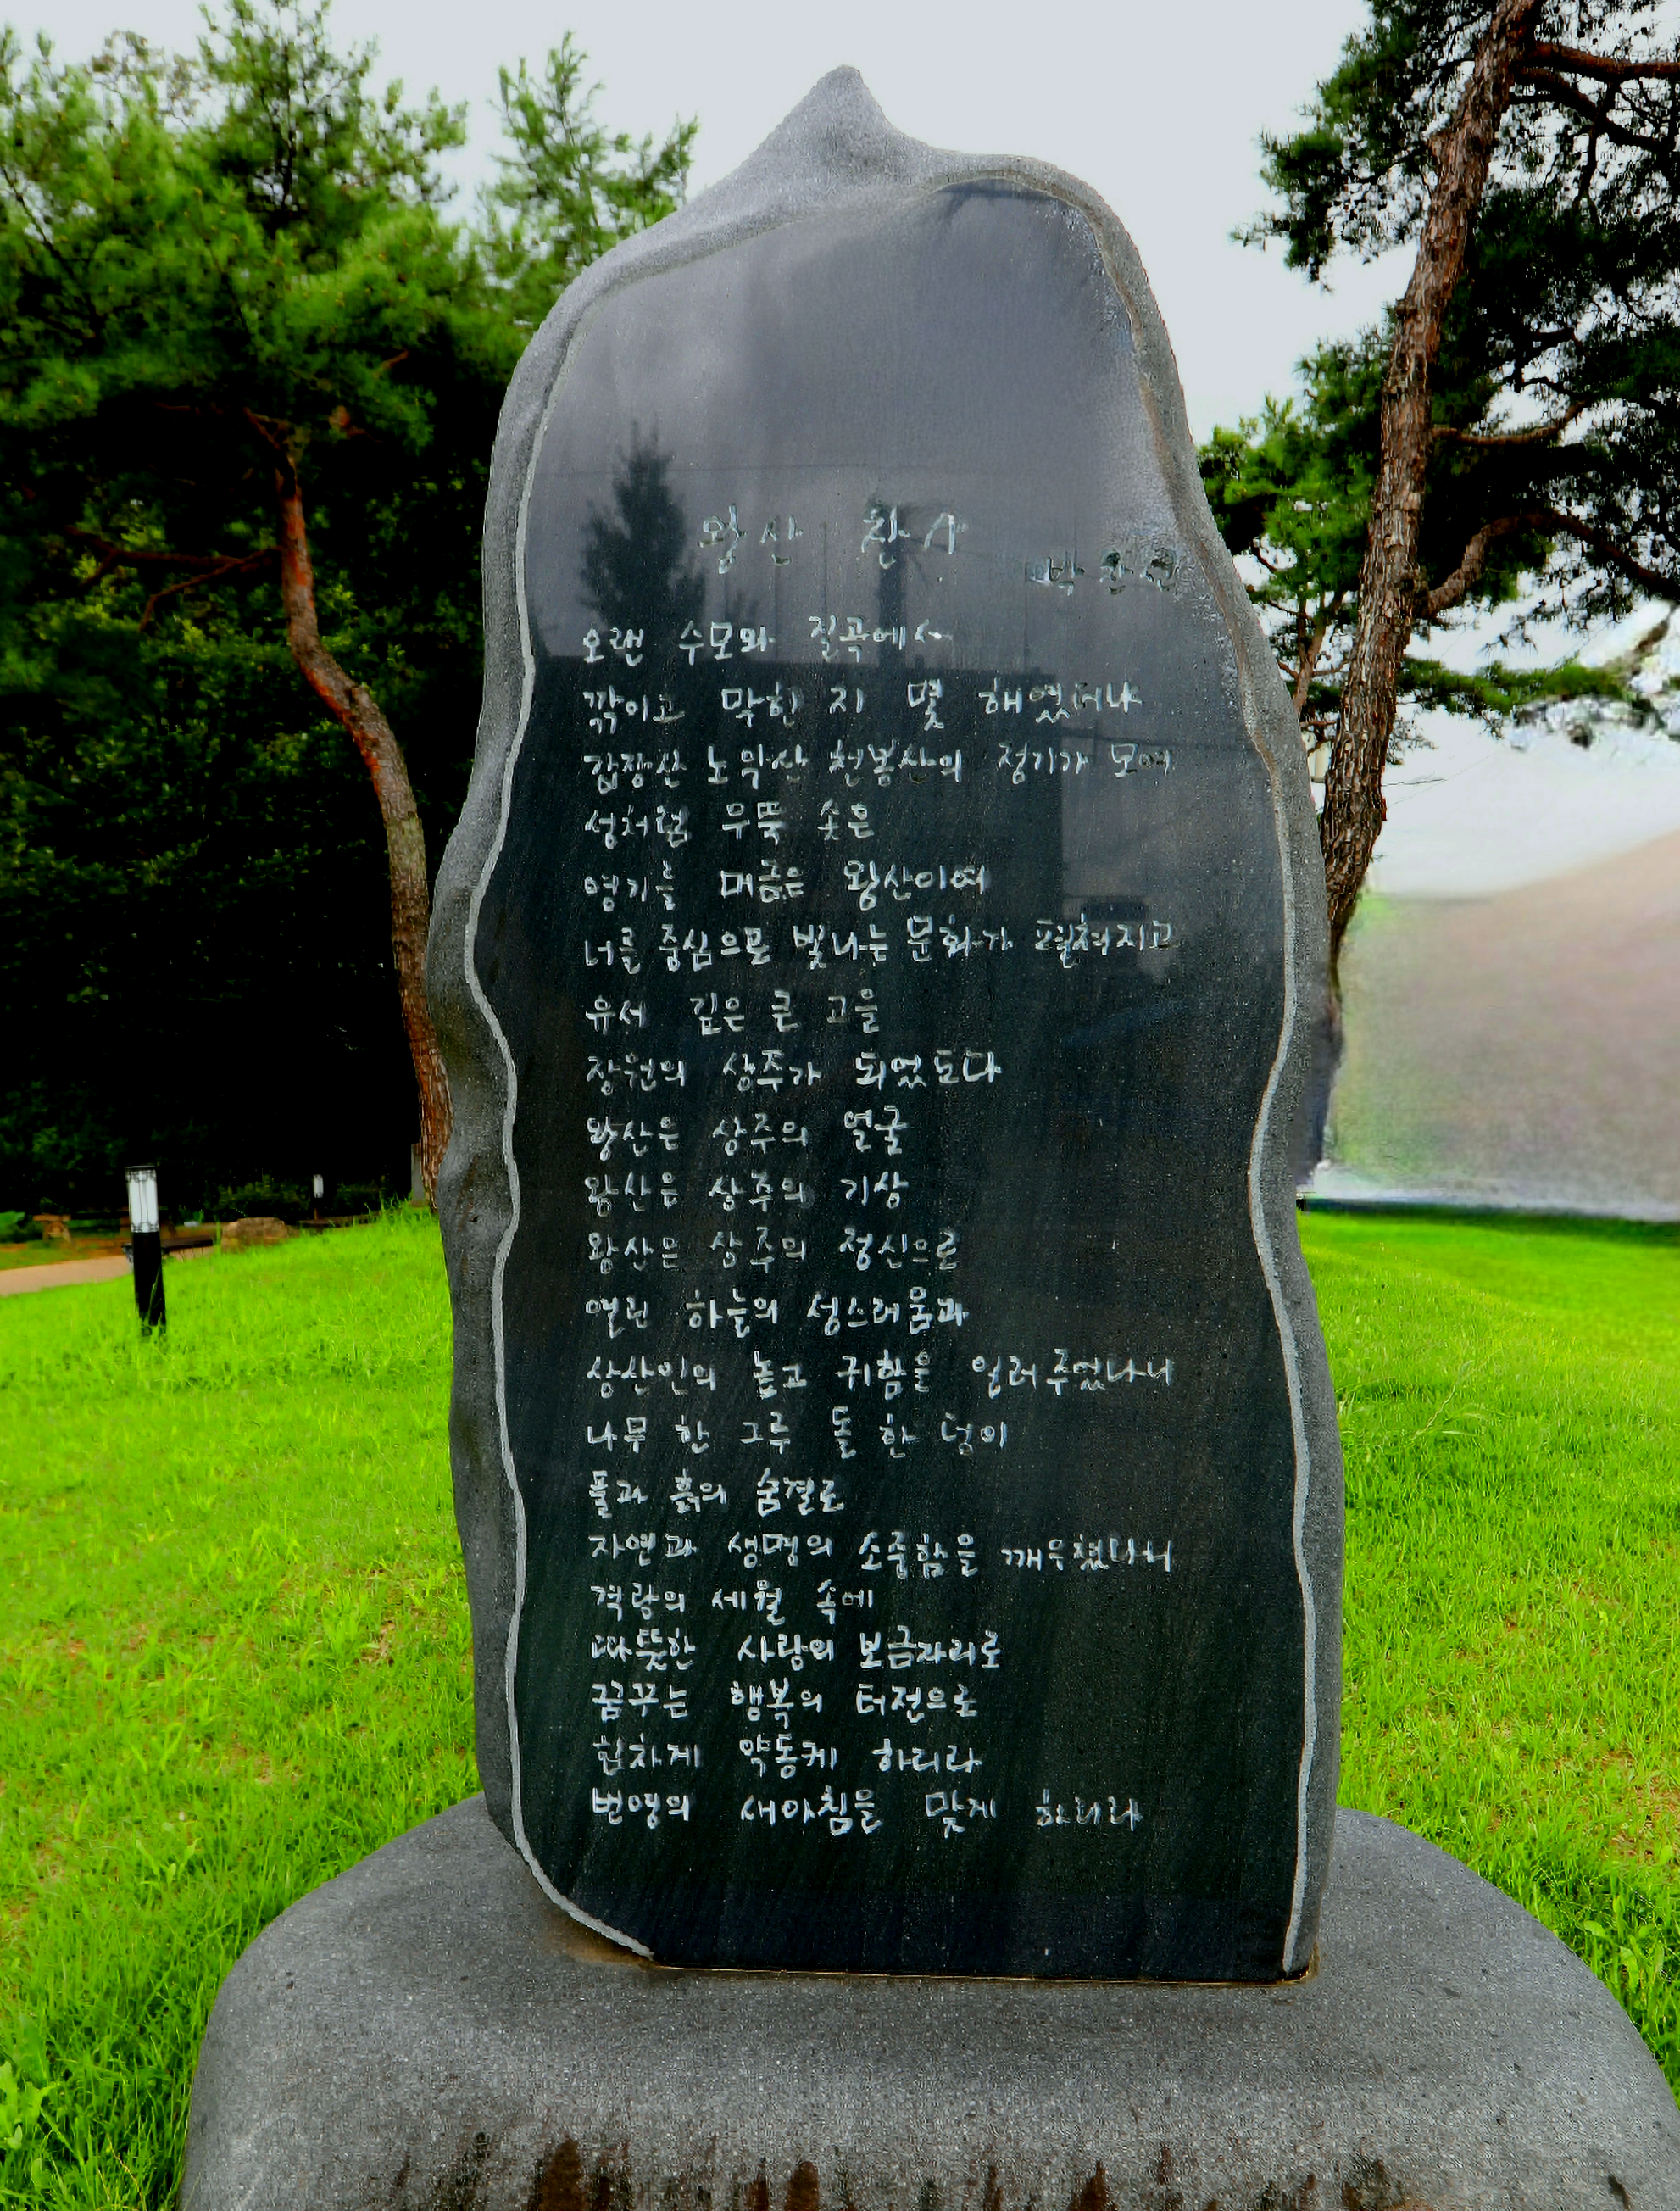 왕산 찬가
박찬선
오랜 수모와 질곡에서
깎이고 막힌 지 몇 해였더냐
갑장산 노악산 천봉산의 정기가 모여
성처럼 우뚝 솟은
영기를 머금은 왕산이여
너를 중심으로 빛나는 문화가 펼쳐지고
유서 깊은 큰 고을
장원의 상주가 되었도다
왕산은 상주의 얼굴
왕산은 상주의 기상
왕산은 상주의 정신으로
열린 하늘의 성스러움과
상산인의 높고 귀함을 일러주었나니
나무 한 그루 돌 한 덩이
풀과 흙의 숨결로
자연과 생명의 소중함을 깨우쳤나니
격랑의 세월 속에
따뜻한 사랑의 보금자리로
꿈꾸는 행복의 터전으로
힘차게 약동케 하리라
번영의 새아침을 맞게 하리라